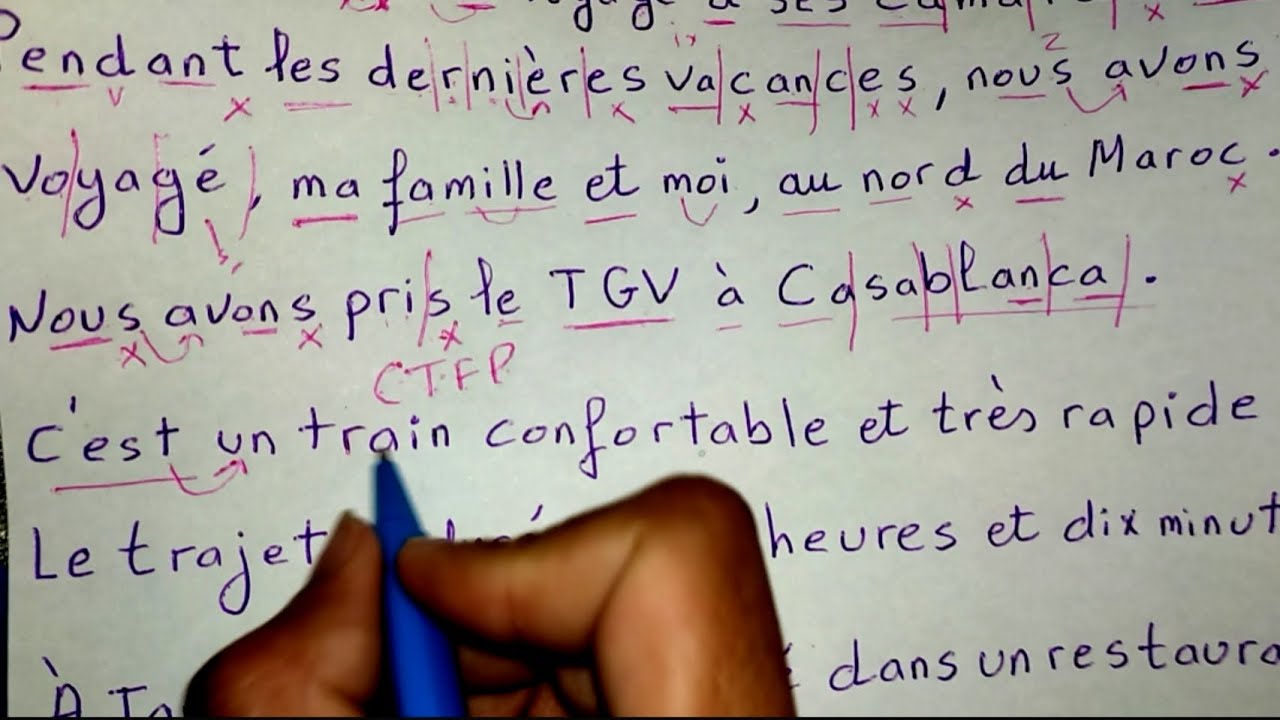 Pendant les dernières vacances, nous avons
voyagé, ma famille et moi, au nord du Maroc.
Nous avons pris le TGV à Casablanca.
C.T.F.P
C'est un train confortable et très rapide
Le trajet heures et dix minut
À dans un restaura